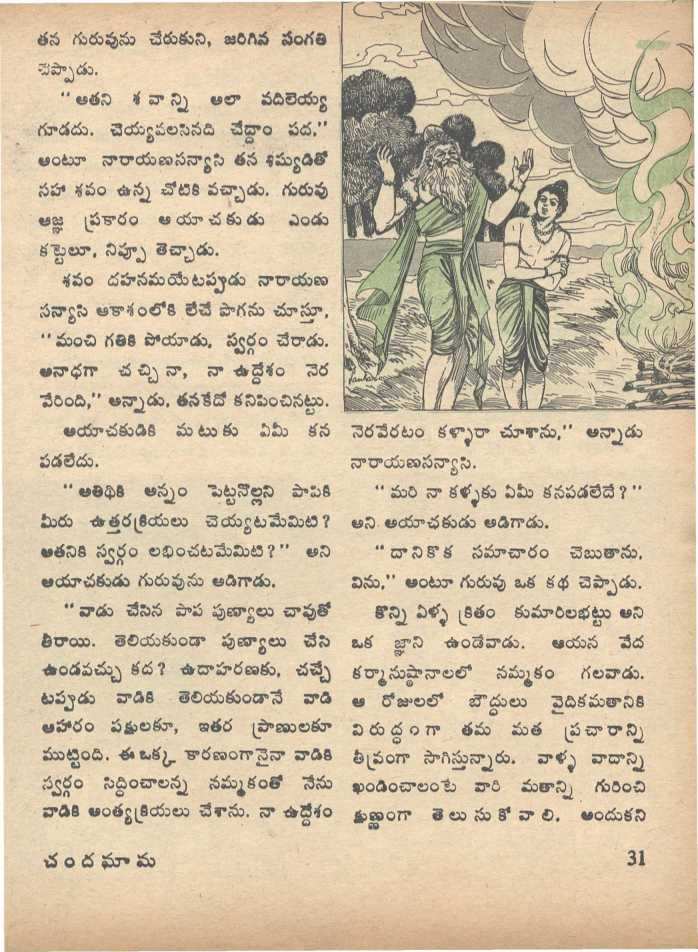 తన గురువును చేరుకుని, జరిగిన సంగతి
చెప్పాడు.
"అతని శవాన్ని అలా వదిలెయ్య
గూడదు. చెయ్యవలసినది చేద్దాం పద,"
అంటూ నారాయణసన్యాసి తన శిష్యుడితో
సహా శవం ఉన్న చోటికి వచ్చాడు. గురువు
ఆజ్ఞ ప్రకారం అయాచకుడు ఎండు
కట్టెలూ, నిప్పూ తెచ్చాడు.
శవం దహనమయేటప్పుడు నారాయణ
సన్యాసి ఆకాశంలోకి లేచే పొగను చూస్తూ,
"మంచి గతికి పోయాడు, స్వర్గం చేరాడు.
అనాధగా చచ్చినా, నా ఉద్దేశం నెర
వేరింది," అన్నాడు, తనకేదో కనిపించినట్టు.
అయాచకుడికి మటుకు ఏమీ కన
పడలేదు.
"అతిథికి అన్నం పెట్టనొల్లని పాపికి
మీరు ఉత్తరక్రియలు చెయ్యటమేమిటి?
అతనికి స్వర్గం లభించటమేమిటి?" అని
అయాచకుడు గురువును అడిగాడు.
"వాడు చేసిన పాప పుణ్యాలు చావుతో
తీరాయి. తెలియకుండా పుణ్యాలు చేసి
ఉండవచ్చు కద? ఉదాహరణకు, చచ్చే
టప్పుడు వాడికి తెలియకుండానే వాడి
ఆహారం పక్షులకూ, ఇతర ప్రాణులకూ
ముట్టింది. ఈ ఒక్క కారణంగానైనా వాడికి
స్వర్గం సిద్ధించాలన్న నమ్మకంతో నేను
వాడికి అంత్యక్రియలు చేశాను. నా ఉద్దేశం
నెరవేరటం కళ్ళారా చూశాను," అన్నాడు
నారాయణసన్యాసి.
"మరి నా కళ్ళకు ఏమీ కనపడలేదే?"
అని అయాచకుడు అడిగాడు.
"దానికొక సమాచారం చెబుతాను,
విను," అంటూ గురువు ఒక కథ చెప్పాడు.
కొన్ని ఏళ్ళ క్రితం కుమారిలభట్టు అని
ఒక జ్ఞాని ఉండేవాడు. ఆయన వేద
కర్మానుష్ఠానాలలో నమ్మకం గలవాడు.
ఆ రోజులలో బౌద్ధులు వైదికమతానికి
విరుద్ధంగా తమ మత ప్రచారాన్ని
తీవ్రంగా సాగిస్తున్నారు. వాళ్ళ వాదాన్ని
ఖండించాలంటే వారి మతాన్ని గురించి
క్షుణ్ణంగా తెలుసుకోవాలి. అందుకని
చందమామ
31